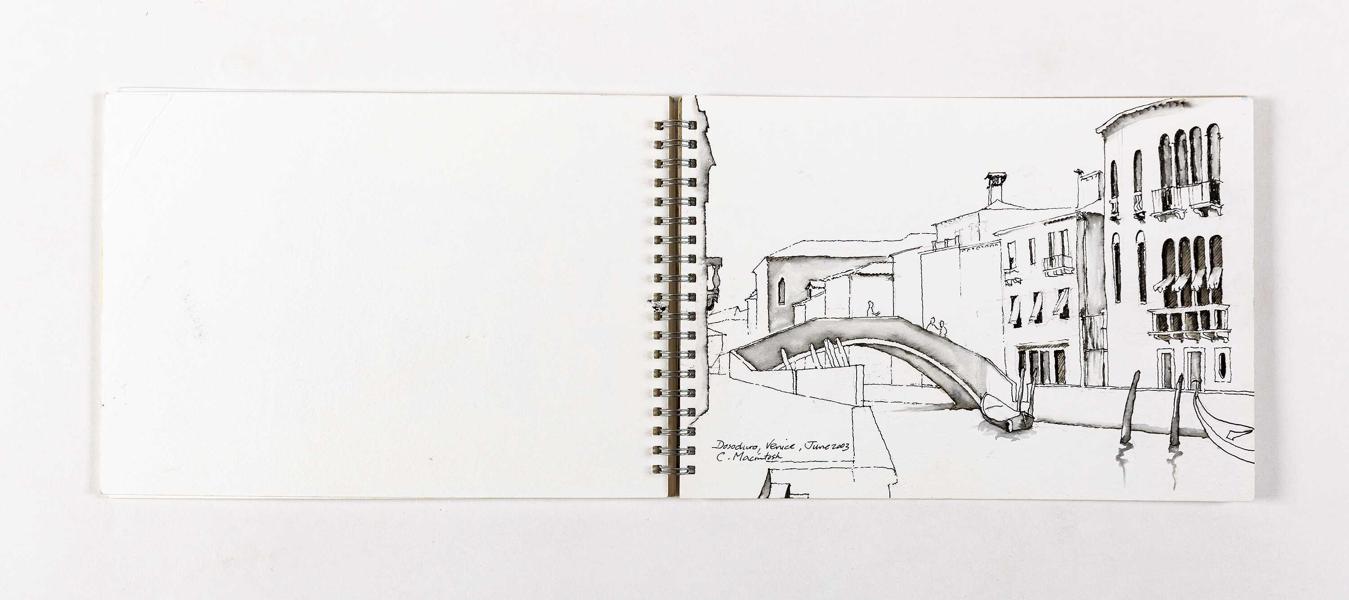 Dosoduro, Venice, June 2003
C. Macintosh